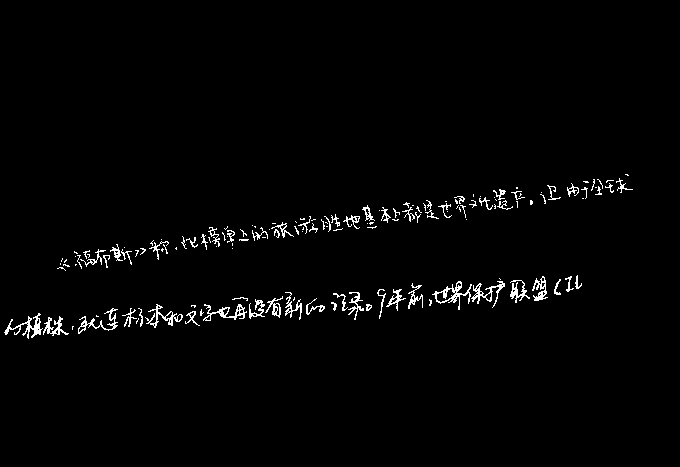 《福布斯》称,此榜单上的旅游胜地基本上都是世界文化遗产。但由于全球
的植株,就连标本和文字也再没有新的记录。9年前,世界保护联盟(IU